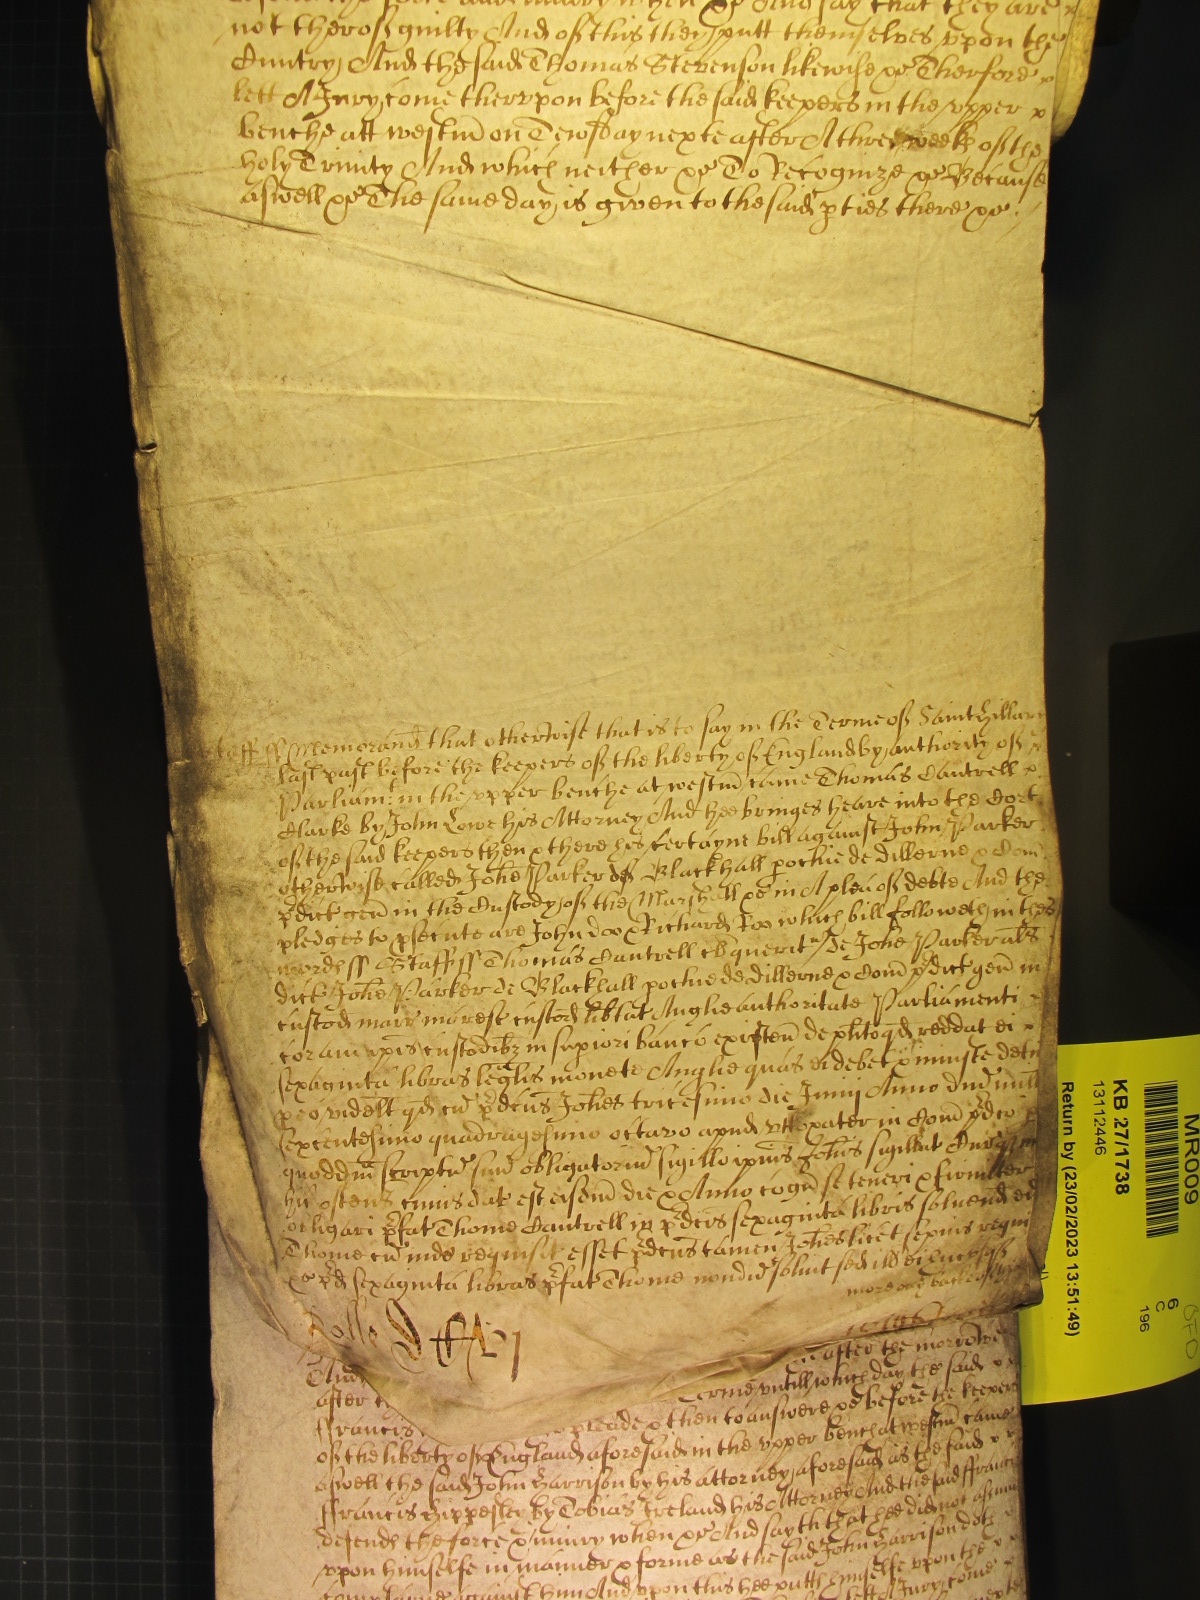 not therof guilty And of this they putt themselves vpon the
Cuntry And the said Thomas Stevenson likewise &c Therfore
lett A Jury come thervpon before the said keepers in the vpper
benche att westm on Tewsday nexte after A three weeks of the
holy Trinity And which neither &c To Recognize &c Because
aswell &c The same day is given to the said pties there &c
Staff ss Memorand that otherwise that is to say in the Terme of Saint Hillary
last past before the keepers of the liberty of England by authority of
Parliamt in the vpper benche at westm came Thomas Cantrell
Clarke by John Lowe his Attorney And hee bringes heare into the Cort
of the said keepers then & there his certayne bill against John Parker
otherwise called Johe Parker de Blackhall pochie de Dillerne & Com
pdict gen in the Custody of the Marshall &c in A plea of debte And the
pledges to psecute are John doo & Richard Roo which bill followeth in thes
wordes ss Staff ss Thomas Cantrell cticus queritr de Johe Parker als
dict Johe Parker de Blackhall pochie de dillerne & Com pdict gen in
custod marr maresc custod libtat Anglie authoritate Parliamenti
coram ipis custodibz in supiori banco existen de plito qd reddat ei
sexaginta libras leglis monete Anglie quas ei debet & iniuste detin
p eo videlt qd cu pdcus Johes tricesimo die Junij Anno dni mill
sexcentesimo quadragesimo octavo apud vttoxater in Com pdco
quoddm scriptu suu obligatoriu sigillo ipius Johis sigillat Cur
hic ostens cuius dat est eisdem die & Anno cogn se teneri & firmiter
obligari pfat Thome Cantrell in pdcis sexaginta libris solvend eid
Thome cu inde requisit esset pdcus tamen Johes licet sepius requi
&c pd sexaginta libras pfat Thome nondu solvit sed ill ei hucusqs
more on ye backe of this
Rolle
after the morrowe
Terme vntill which day the said
after
Francis
pleade & then to answere &c before the keepers
of the liberty of England aforesaid in the vpper bench at westm came
aswell the said John Harrison by his attorney aforesaid as the said
ffrancis Hippesley by Tobias Ireland his Attorney And the said ffrancis
defend the force & iniury when &c And sayth that hee did not assume
vpon himselfe in manner & forme as the said John Harrison doth
complaine against him And vpon this hee putts himselfe vpon the
MR009
KB 27/1738
13112446
Return by (23/02/2023 13:51:49)
6
C
196